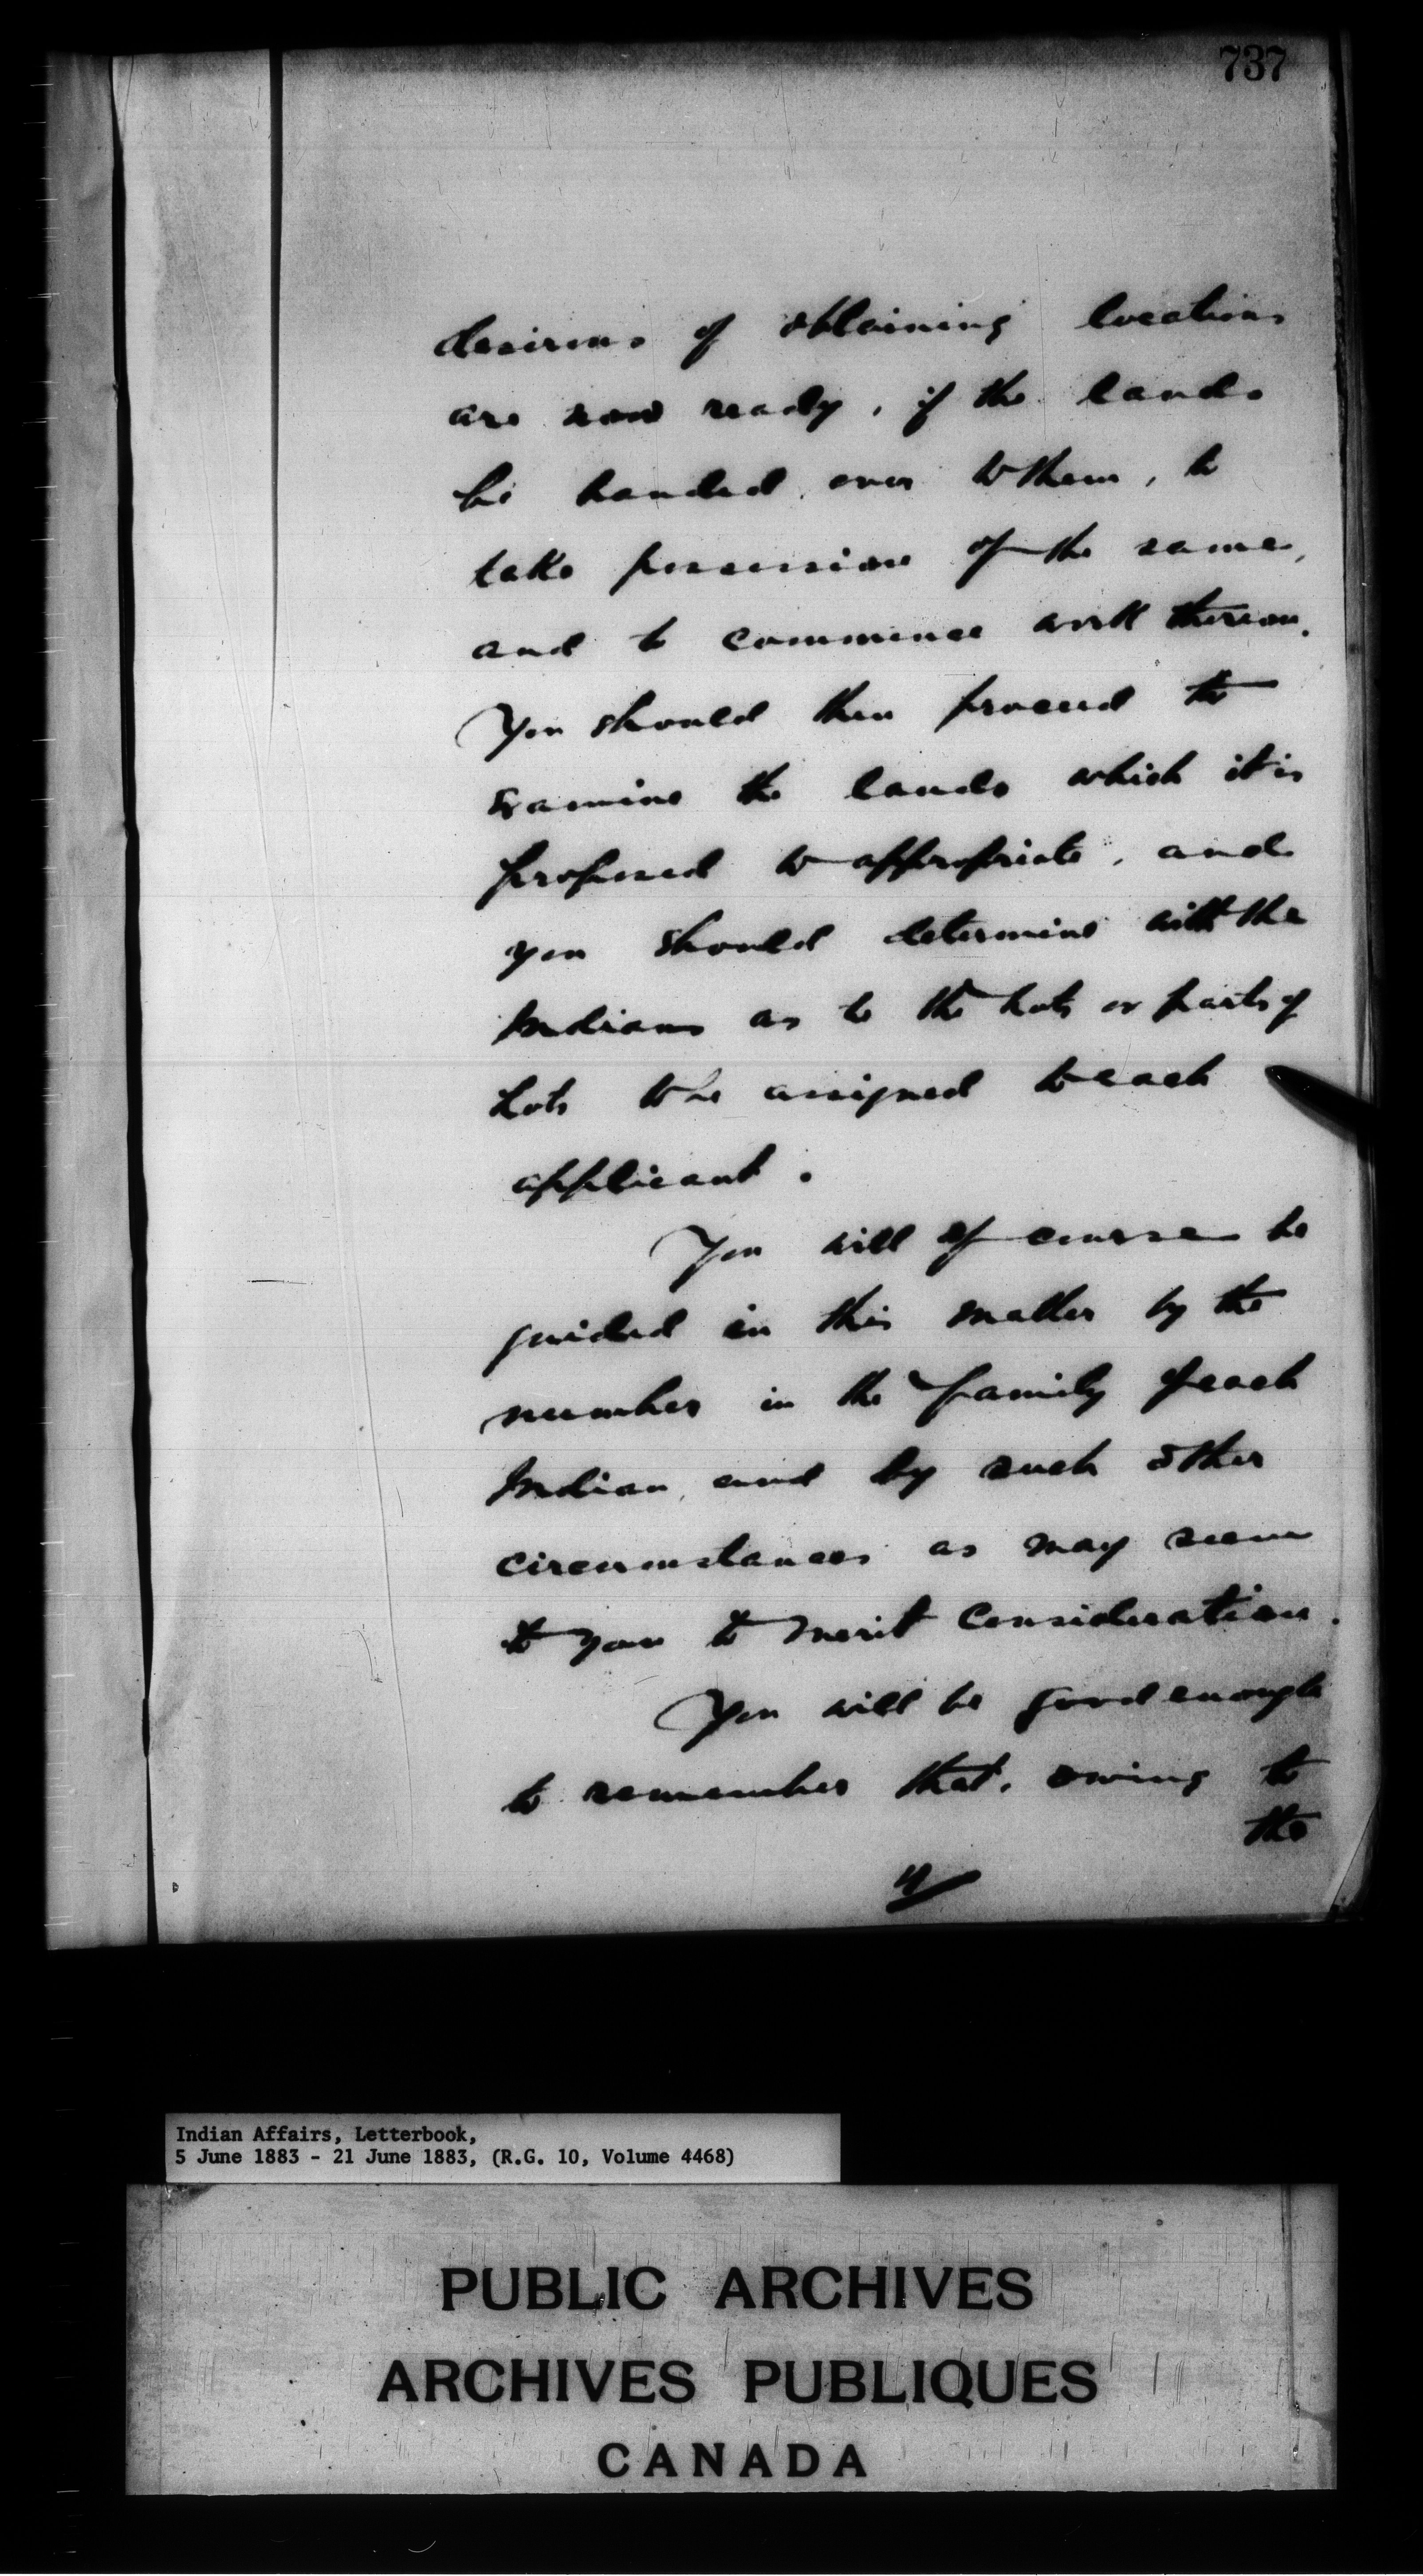 737
desirous of obtaining locations
are now ready, if the lands
be handed over to them, to
take possession of the same,
and to commence work thereon.
You should then proceed to
examine the lands which it is
proposed to appropriate, and
you should determine with the
Indians as to the Lots or parts of
Lots to be assigned to each
applicant.
You will of course be
guided in this matter by the
number in the family of each
Indian, and by such other
circumstances as may seem
to you to merit consideration.
You will be good enough
to remember that, owing to
the
Indian Affairs, Letterbook,
5 June 1883 - 21 June 1883, (R.G. 10, Volume 4468)
PUBLIC ARCHIVES
ARCHIVES PUBLIQUES
CANADA